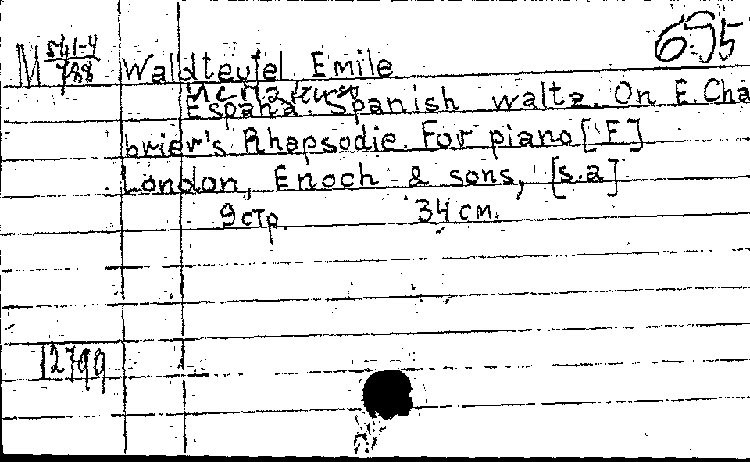 695
M 541-4/788 Waldteufel, Emile
España. Spanish waltz. On E. Cha
brier's Rhapsodie. For piano [F]
London, Enoch & sons, [s.a]
9 стр. 34 см.
12799